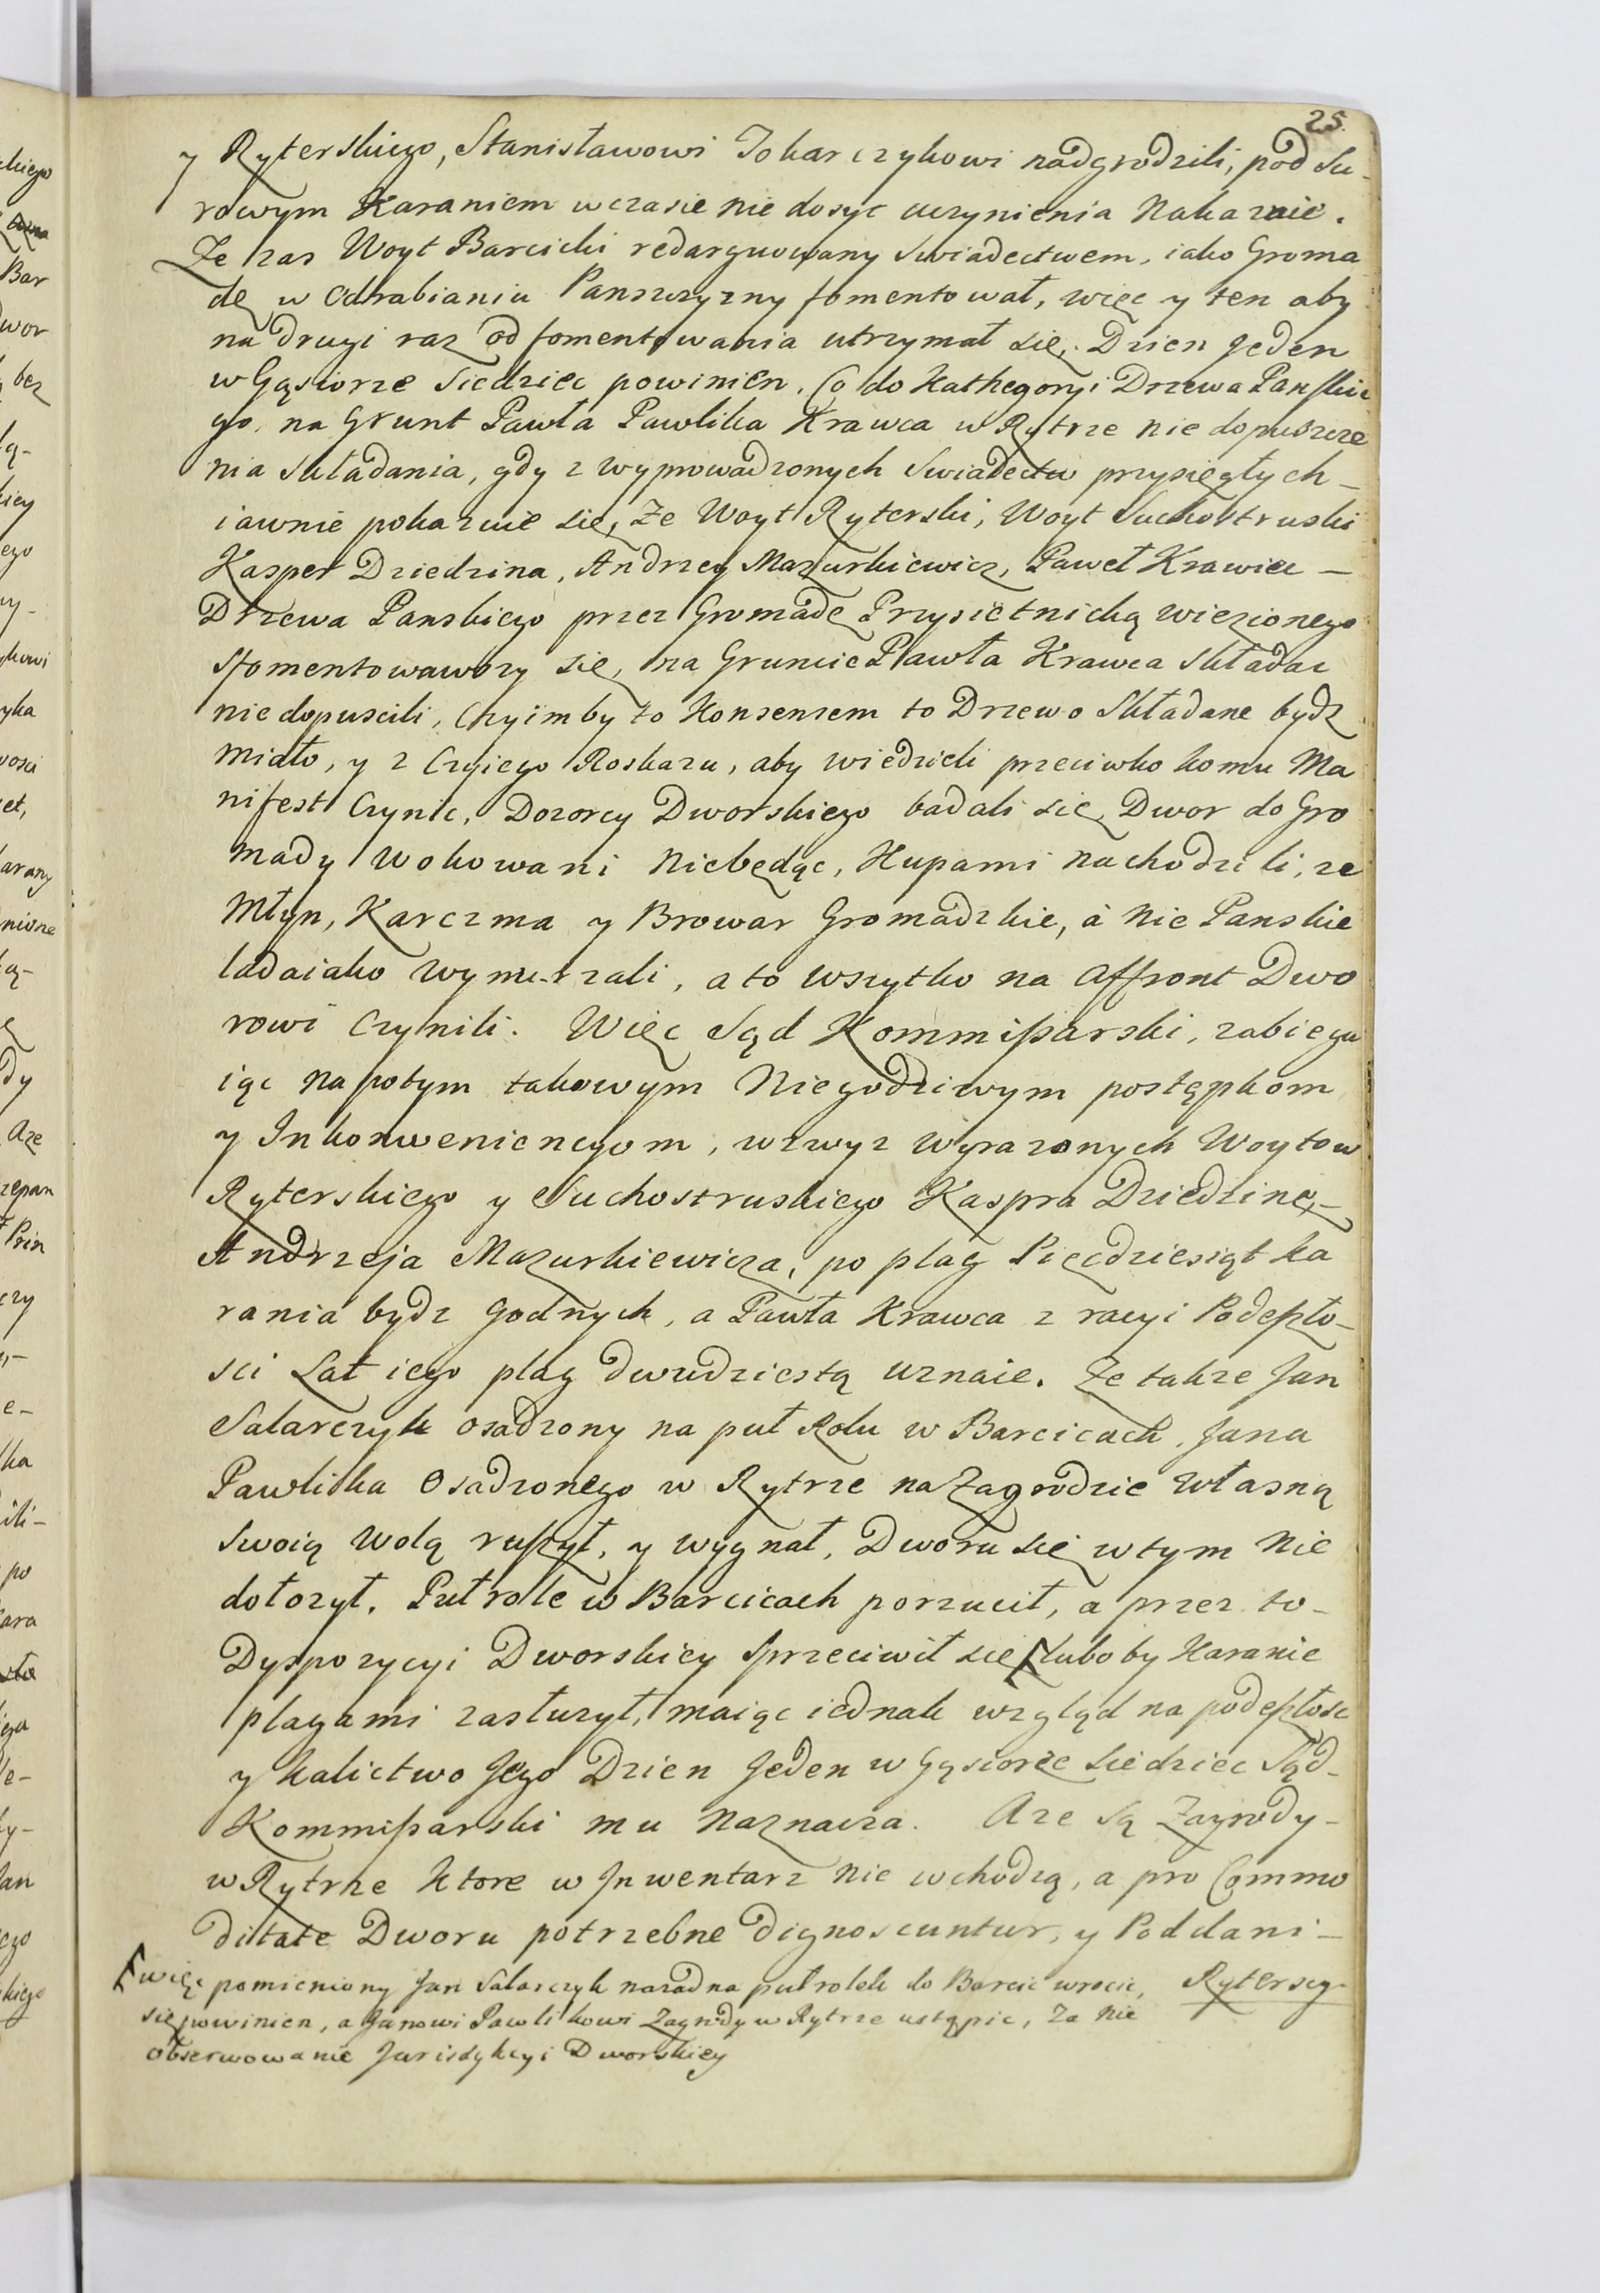 25.
y Ryterskiego, Stanisławowi Tokarczykowi nadgrodzili, pod su-
rowym Karaniem w czasie nie dosyc uczynienia Nakazuie.
Ze zas Woyt Barcicki redarguowany Swiadectwem, iako Groma
dę w Odrabianiu Panszczyzny fomentował, więc y ten aby
na drugi raz od fomentowania utrzymał się, Dzien Jeden
w Gąsiorze Siedziec powinien. Co do Kathegoryi Drzewa Panskie
go, na Grunt Pawła Pawlika Krawca w Rytrze nie dopuszcze
nia składania, gdy z wyprowadzonych Swiadectw przysięgłych -
iawnie pokazuie się, Ze Woyt Ryterski, Woyt Suchostruski
Kasper Dziedzina, Andrzey Mazurkiewicz, Paweł Krawiec -
Drzewa Panskiego przez Gromadę Przysietnicką wiezionego
sfomentowawszy się, na Gruncie Pawła Krawca składac
nie dopuscili, Czyimby to Konsensem to Drzewo Składane bydz
miało, y z Czyiego Roskazu, aby wiedzieli przeciwko komu Ma
nifest Czynic, Dozorcy Dworskiego badali się, Dwor do Gro
mady Wokowani Niebędąc, Kupami nachodzili, ze
Młyn, Karczma y Browar Gromadzkie, à Nie Panskie
ladaiako wymierzali, a to wszytko na Affront Dwo
rowi Czynili. Więc Sąd Kommißarski, zabiega
iąc na potym takowym Niegodziwym postąpkom
y Inkonwenienc<wbr>yom, wzwyz wyrazonych Woytow
Ryterskiego y Suchostruskiego Kaspra Dziedzinę -
Andrzeja Mazurkiewicza, po plag Pięcdziesiąt ka
rania bydz godnych, a Pawła Krawca z racyi Podeszło-
sci Lat iego plag dwudziestą uznaie. Ze takze Jan
Salarczyk osadzony na puł Rolu w Barcicach, Jana
Pawlika Osadzonego w Rytrze na Zagrodzie Własną
swoią Wolą ruszył, y wygnał, Dworu się w tym Nie
dołozył, Puł role w Barcicach porzucił, a przez to -
Dyspozycyi Dworskiey sprzeciwił się luboby Karanie
plagami zasłuzył, maiąc iednak wzgląd na podeszłosc
y kalictwo Jego Dzien Jeden w Gąsiorze siedziec Sąd -
Kommißarski mu Naznacza. A ze są Zagrody -
w Rytrze ktore w Inwentarz nie wchodzą, a pro Commo
ditate Dworu potrzebne dignoscuntur, y Poddani -
więc pomieniony Jan Salarczyk nazad na puł rolek do Barcic wrocic, Ryterscy
się powinien, a Janowi Pawlikowi Zagrody w Rytrze ustąpic, Za Nie
obserwowanie Jurisdykcyi Dworskiey